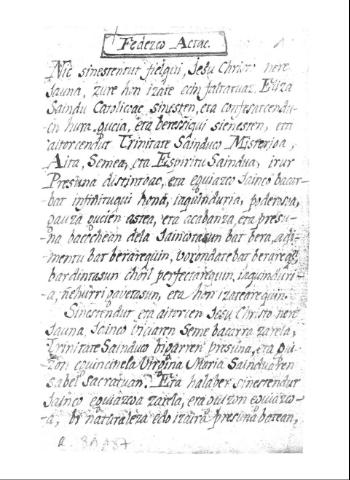 Federco Actac.
Nic sinestentut fielqui, Jesu Christo nere
Jauna, zure hon izate ecin faltatuaz Eliza
Saindu Catolicac sinesten, eta confesatcendu-
en hura gucia, eta bereciqui sienesten, eta
aitorcendut Trinitate Sainduco Misterioa,
Aita, Semea, eta Espiritu Saindua, irur
Presuna distintoac, eta eguiazco Jainco bacar-
bat infinituqui hona, jaquinduria, poderosua,
gauza gucien astea, eta acabanza, eta presu-
-na batechean dela Jaincotasun bat bera, adi-
mentu bat berarequin, vorondate bat berarequ
bardintasun chiril perfectarequin, jaquinduri-
-a, nehurri gavetasun, eta hon izatearequin.
Sinestendut, eta aitorcen Jesu Christo nere
Jauna Jainco biciaren Seme bacarra zarela,
Trinitate Sainduco bigarren presuna, eta gui-
zon eguincinela Virgina Maria Sainduaren
sabel sacratuan. Eta halaber sinestendut
Jainco eguiazcoa zarela, eta guizon eguiazco-
-a, bi naturaleza edo izaita presuna batean,